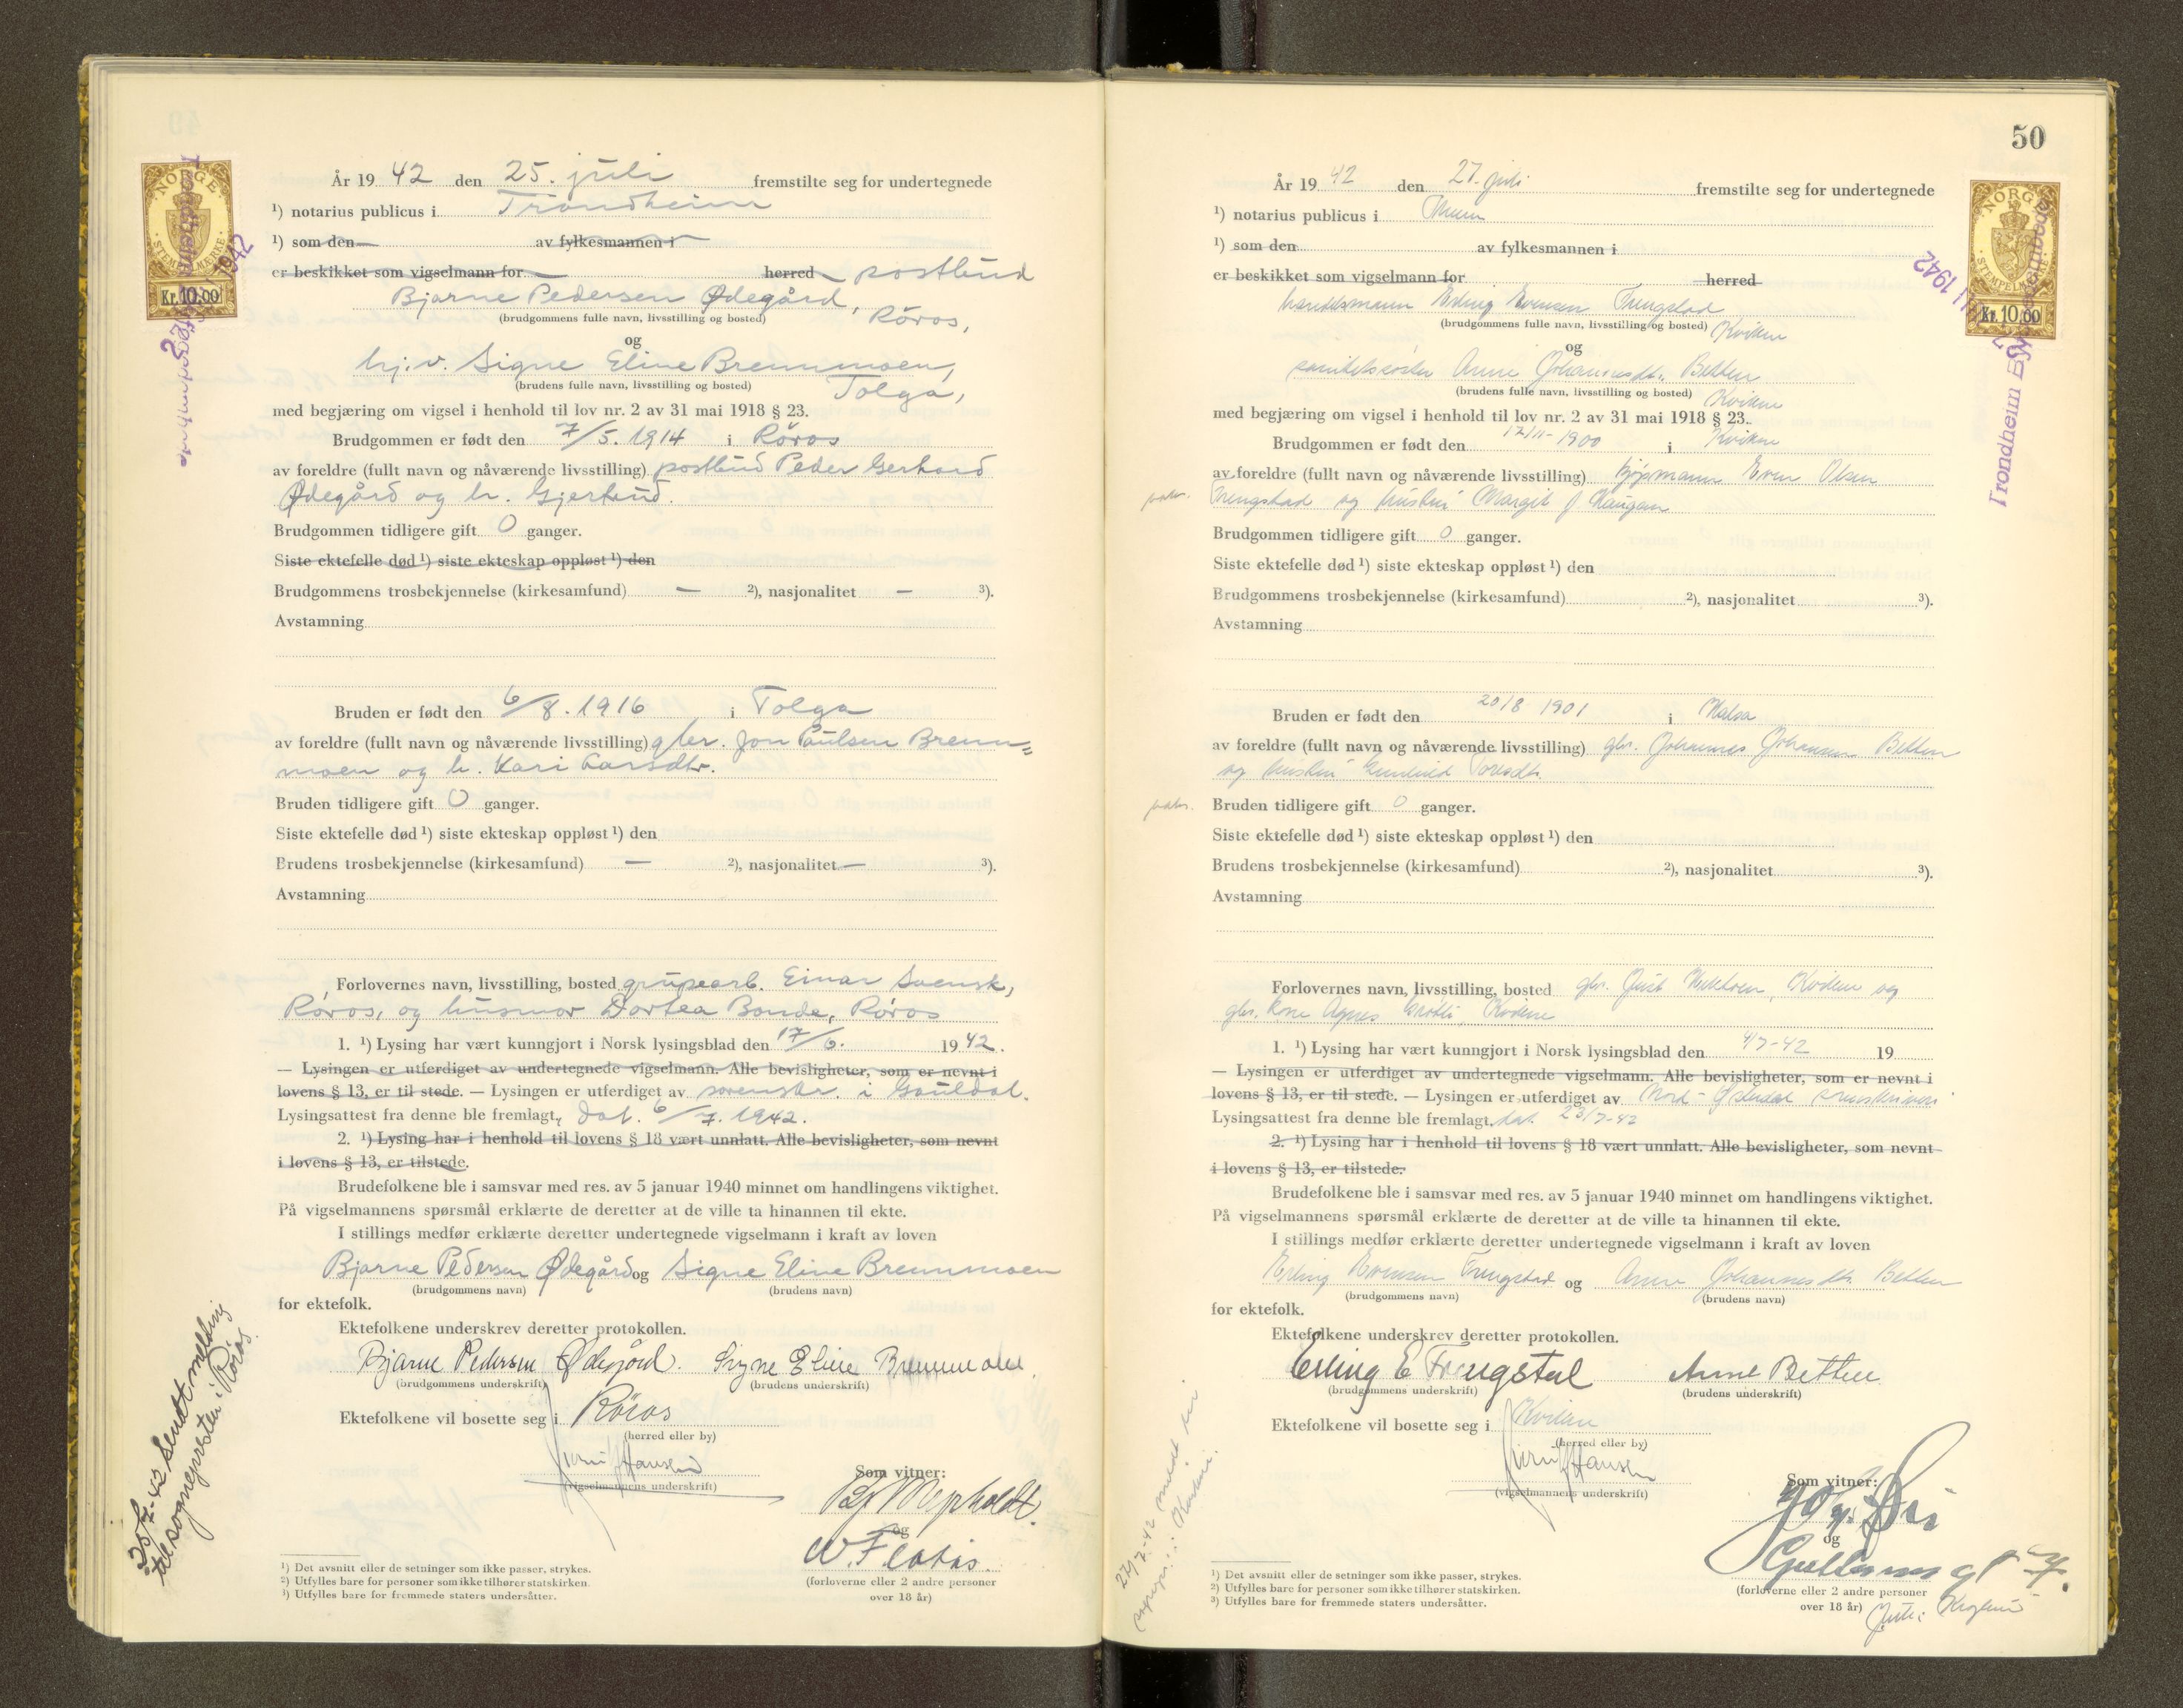 År 1942 den 25. juli fremstilte seg for undertegnede
¹) notarius publicus i Trondheim
¹) som den av fylkesmannen i
er beskikket som vigselmann for herred postbud
Bjarne Pedersen Ødegård,
(brudgommens fulle navn, livsstilling og bosted) Röros,
og
hj.v. Signe Eline Brennmoen,
(brudens fulle navn, livsstilling og bosted) Tolga,
med begjæring om vigsel i henhold til lov nr. 2 av 31 mai 1918 § 23.
Brudgommen er født den 7/5. 1914 i Röros
av foreldre (fullt navn og nåværende livsstilling) postbud Peder Gerhard
Ødegård og h. Gjertrud.
Brudgommen tidligere gift 0 ganger.
Siste ektefelle død ¹) siste ekteskap oppløst ¹) den
Brudgommens trosbekjennelse (kirkesamfund) — ²), nasjonalitet — ³).
Avstamning
Bruden er født den 6/8. 1916 i Tolga
av foreldre (fullt navn og nåværende livsstilling) gbr. Jon Paulsen Brenn=
moen og h. Kari Larsdtr.
Bruden tidligere gift 0 ganger.
Siste ektefelle død ¹) siste ekteskap oppløst ¹) den
Brudens trosbekjennelse (kirkesamfund) — ²), nasjonalitet — ³).
Avstamning
Forlovernes navn, livsstilling, bosted grupearb. Einar Svensk,
Röros, og husmor Dortea Bonde, Röros
1. ¹) Lysing har vært kunngjort i Norsk lysingsblad den 17/6. 1942.
— Lysingen er utferdiget av undertegnede vigselmann. Alle bevisligheter, som er nevnt i
lovens § 13, er til stede. — Lysingen er utferdiget av sorenskr. i Gauldal.
Lysingsattest fra denne ble fremlagt, dat. 6/7. 1942.
2. ¹) Lysing har i henhold til lovens § 18 vært unnlatt. Alle bevisligheter, som nevnt
i lovens § 13, er tilstede.
Brudefolkene ble i samsvar med res. av 5 januar 1940 minnet om handlingens viktighet.
På vigselmannens spørsmål erklærte de deretter at de ville ta hinannen til ekte.
I stillings medfør erklærte deretter undertegnede vigselmann i kraft av loven
Bjarne Pedersen Ødegård og Signe Eline Brennmoen
(brudgommens navn) (brudens navn)
for ektefolk.
Ektefolkene underskrev deretter protokollen.
Bjarne Pedersen Ødegård. Signe Eline Brennmoen.
(brudgommens underskrift) (brudens underskrift)
Ektefolkene vil bosette seg i Röros
(herred eller by)
Hansen
(vigselmannens underskrift)
Som vitner:
og
(forloverne eller 2 andre personer
over 18 år)
¹) Det avsnitt eller de setninger som ikke passer, strykes.
²) Utfylles bare for personer som ikke tilhører statskirken.
³) Utfylles bare for fremmede staters undersåtter.
25/7-42 sendt melding
til sognepresten i Röros.
NORGE
STEMPELMERKE
Kr. 10.00
1942
50
År 1942 den 27. juli fremstilte seg for undertegnede
¹) notarius publicus i Thrm
¹) som den av fylkesmannen i
er beskikket som vigselmann for herred
handelsmann Erling Evensen Frengstad
(brudgommens fulle navn, livsstilling og bosted) Kvikne
og
Anne Johannesdtr. Betten
(brudens fulle navn, livsstilling og bosted) Kvikne
med begjæring om vigsel i henhold til lov nr. 2 av 31 mai 1918 § 23.
Brudgommen er født den 12/11-1900 i Kvikne
av foreldre (fullt navn og nåværende livsstilling) kjøpmann Even Olsen
Frengstad og hustru Margit J Haugan
Brudgommen tidligere gift 0 ganger.
Siste ektefelle død ¹) siste ekteskap oppløst ¹) den
Brudgommens trosbekjennelse (kirkesamfund) ²), nasjonalitet ³).
Avstamning
Bruden er født den 20/8 1901 i Halsa
av foreldre (fullt navn og nåværende livsstilling) gbr. Johannes Johansen Betten
og hustru Gunhild Toresdtr.
Bruden tidligere gift 0 ganger.
Siste ektefelle død ¹) siste ekteskap oppløst ¹) den
Brudens trosbekjennelse (kirkesamfund) ²), nasjonalitet ³).
Avstamning
Forlovernes navn, livsstilling, bosted gbr. Kvikne og
gbr. kone Agnes Kvikne
1. ¹) Lysing har vært kunngjort i Norsk lysingsblad den 4/7-42 19
— Lysingen er utferdiget av undertegnede vigselmann. Alle bevisligheter, som er nevnt i
lovens § 13, er til stede. — Lysingen er utferdiget av Nord-Østerdal sorenskriveri
Lysingsattest fra denne ble fremlagt, dat. 23/7-42
2. ¹) Lysing har i henhold til lovens § 18 vært unnlatt. Alle bevisligheter, som nevnt
i lovens § 13, er tilstede.
Brudefolkene ble i samsvar med res. av 5 januar 1940 minnet om handlingens viktighet.
På vigselmannens spørsmål erklærte de deretter at de ville ta hinannen til ekte.
I stillings medfør erklærte deretter undertegnede vigselmann i kraft av loven
Erling Evensen Frengstad og Anne Johannesdtr. Betten
(brudgommens navn) (brudens navn)
for ektefolk.
Ektefolkene underskrev deretter protokollen.
Erling E Frengstad Anne Betten
(brudgommens underskrift) (brudens underskrift)
Ektefolkene vil bosette seg i Kvikne
(herred eller by)
Hansen
(vigselmannens underskrift)
Som vitner:
og
(forloverne eller 2 andre personer
over 18 år)
¹) Det avsnitt eller de setninger som ikke passer, strykes.
²) Utfylles bare for personer som ikke tilhører statskirken.
³) Utfylles bare for fremmede staters undersåtter.
27/7-42
NORGE
STEMPELMERKE
Kr. 10.00
1942
Trondheim Byskriverembede